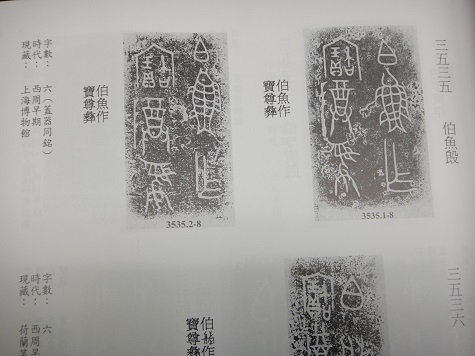 三五三五 伯魚𣪘
3535.1-8
伯魚作
寶尊彝
3535.2-8
伯魚作
寶尊彝
字數：六（蓋器同銘）
時代：西周早期
現藏：上海博物館
三五三六
伯 作
寶尊彝
字數：六
時代：西周早
現藏：荷蘭